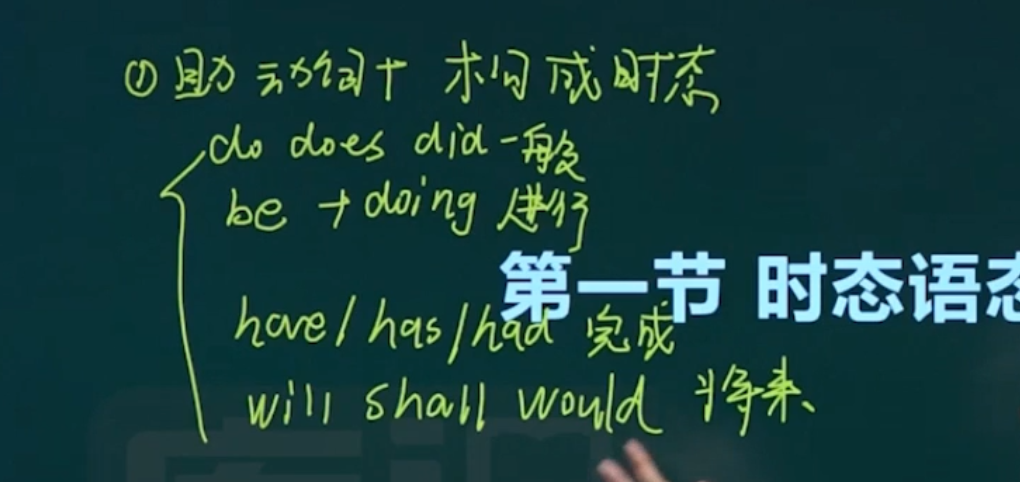 ① 助动词+ 构成时态
do does did 一般
be + doing 进行
第一节 时态语态
have/has/had 完成
will shall would 将来、